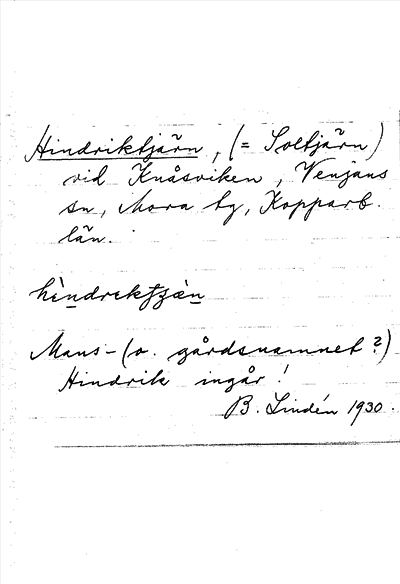 Hindriktjärn, (= Soltjärn)
vid Knåsviken, Venjans
sn, Mora tg, Kopparb.
län.
hìndrektjæ̀n
Mans- (o. gårdsnamnet?)
Hindrik ingår!
B. Lindén 1930.